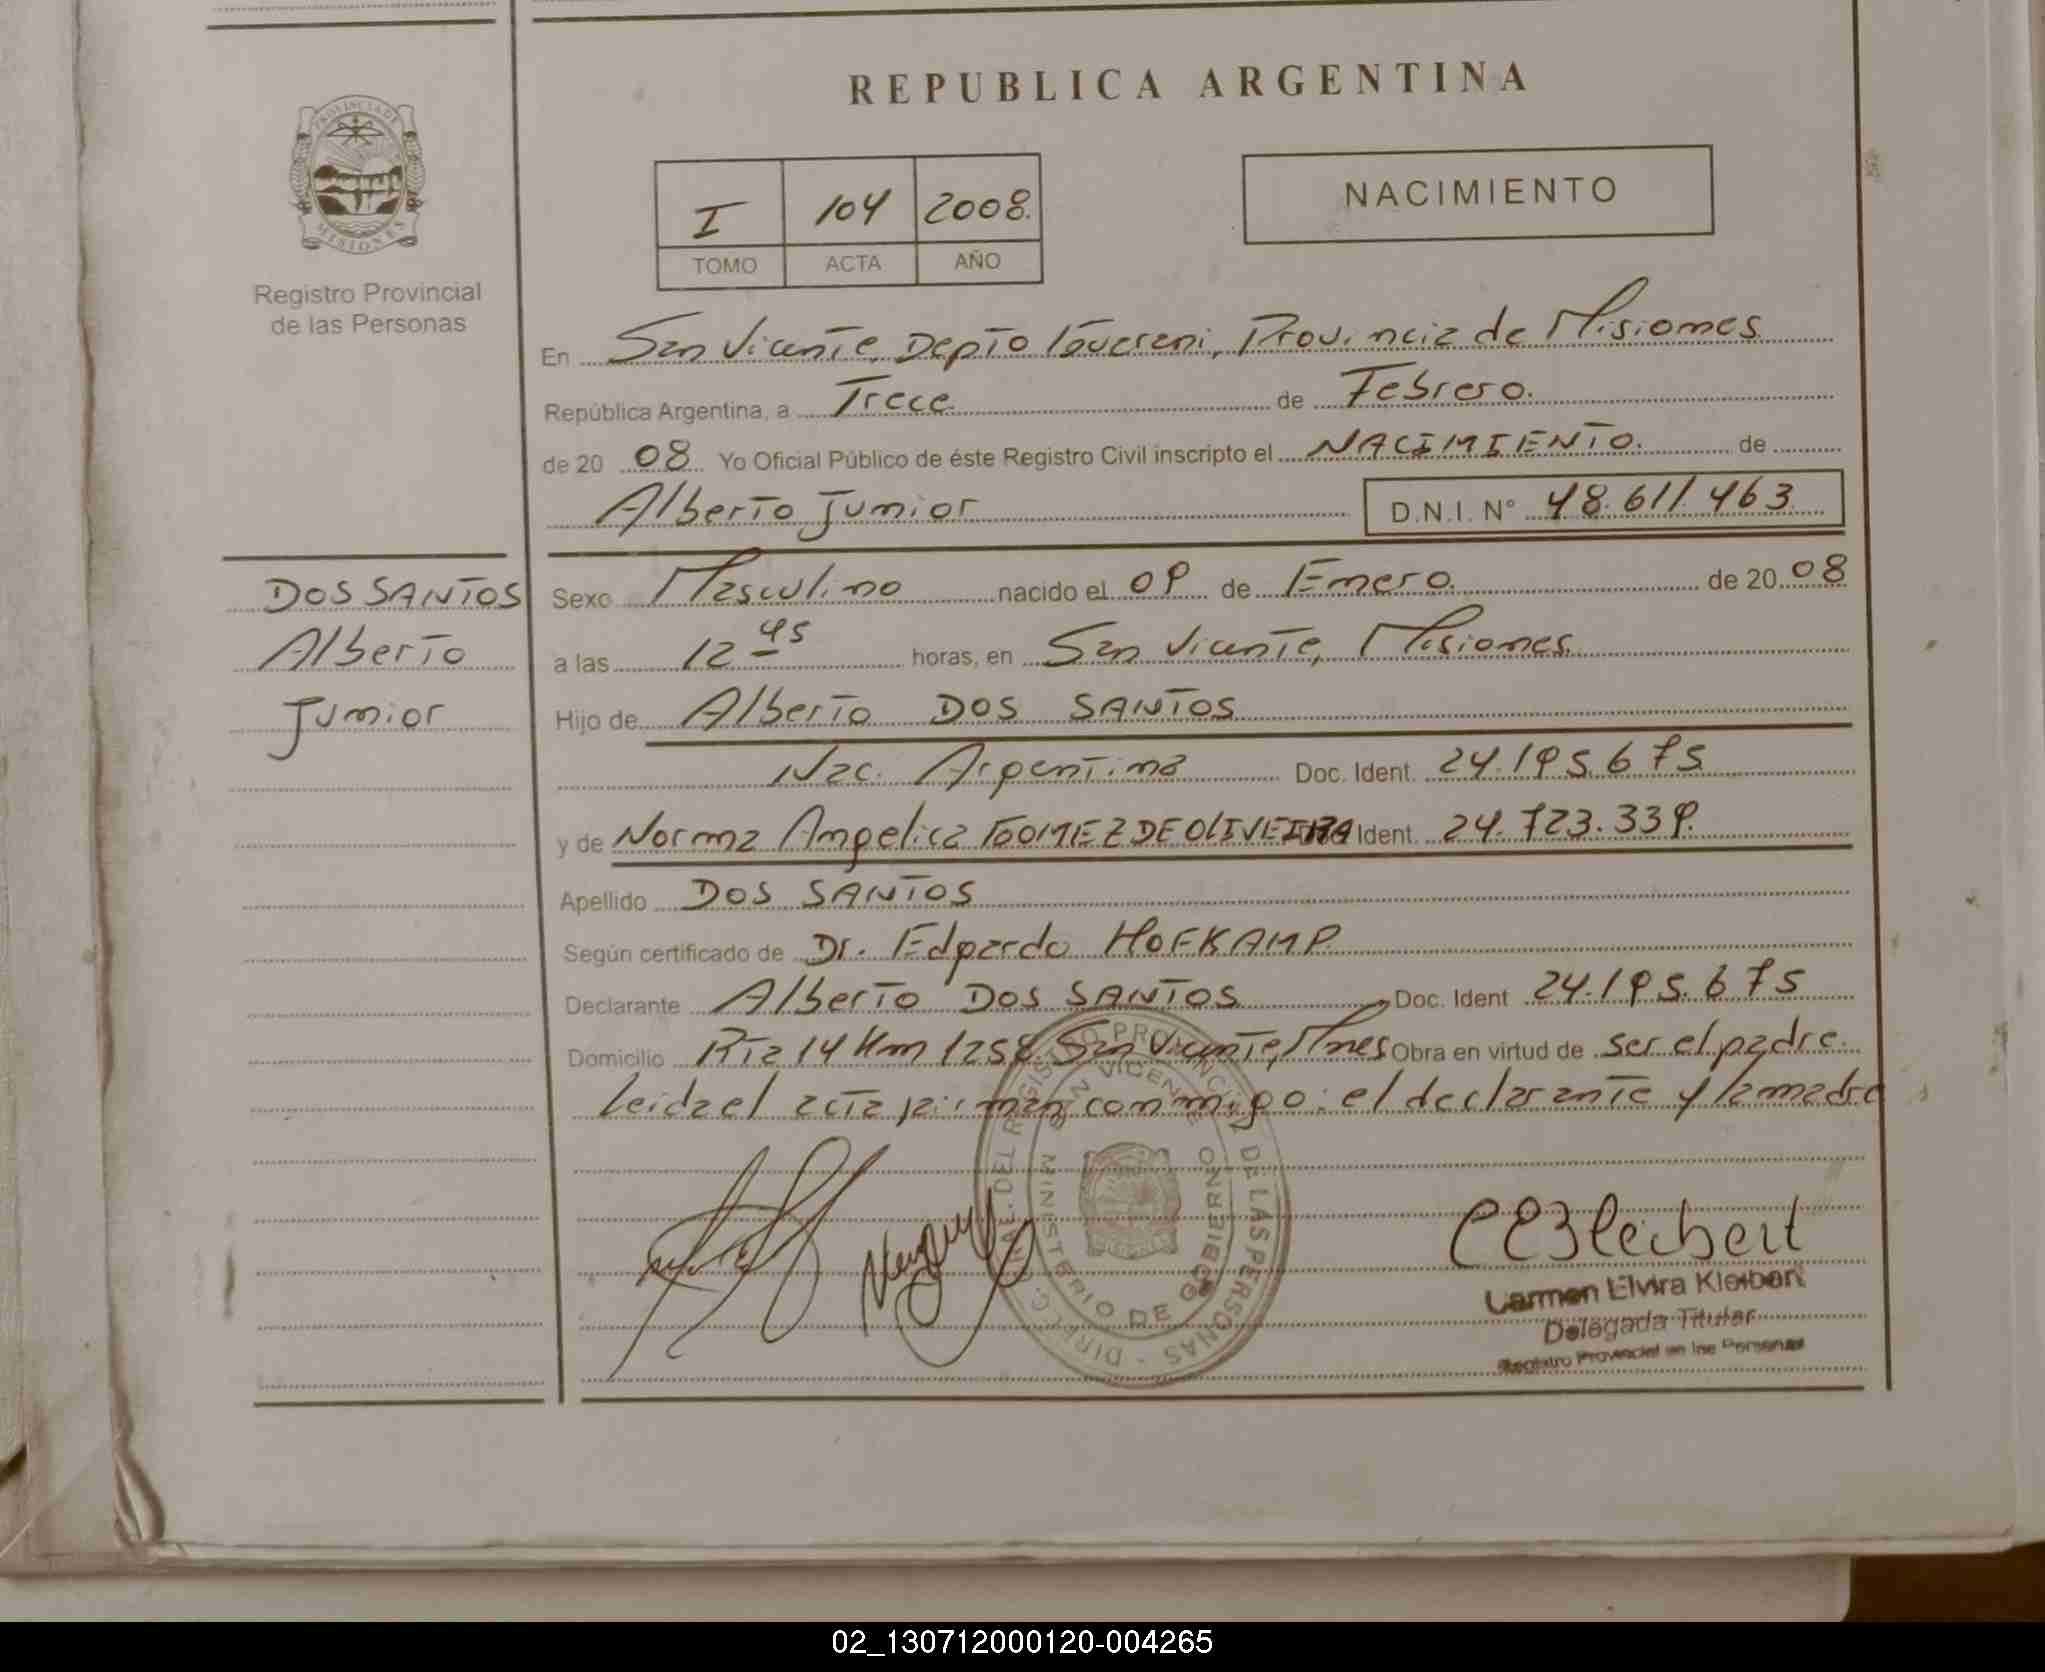 REPUBLICA ARGENTINA
PROVINCIA DE MISIONES
Registro Provincial
de las Personas
I 104 2008.
TOMO ACTA AÑO
NACIMIENTO
En San Vicente, Depto Guarani, Provincia de Misiones
República Argentina, a Trece de Febrero.
de 20 08 Yo Oficial Público de éste Registro Civil inscripto el NACIMIENTO. de
Alberto Junior D.N.I. Nº 48.611.463
DOS SANTOS
Alberto
Junior
Sexo Masculino nacido el 09 de Enero de 20 08
a las 12 45 horas, en San Vicente, Misiones.
Hijo de Alberto DOS SANTOS
Nac. Argentina Doc. Ident. 24.195.675
y de Norma Angelica GOMEZ DE OLIVEIRA Ident. 24.723.339.
Apellido DOS SANTOS
Según certificado de Dr. Edgardo HOFKAMP.
Declarante Alberto DOS SANTOS Doc. Ident 24.195.675
Domicilio Rta 14 Km 1258. San Vicente, Mnes Obra en virtud de ser el padre.
Leida el acta, firman conmigo: el declarante y la madre
DIREC. GRAL. DEL REGISTRO PROVINCIAL DE LAS PERSONAS
SAN VICENTE
MINISTERIO DE GOBIERNO
Carmen Elvira Kleibert
Delegada Titular
Registro Provincial de las Personas
02_130712000120-004265